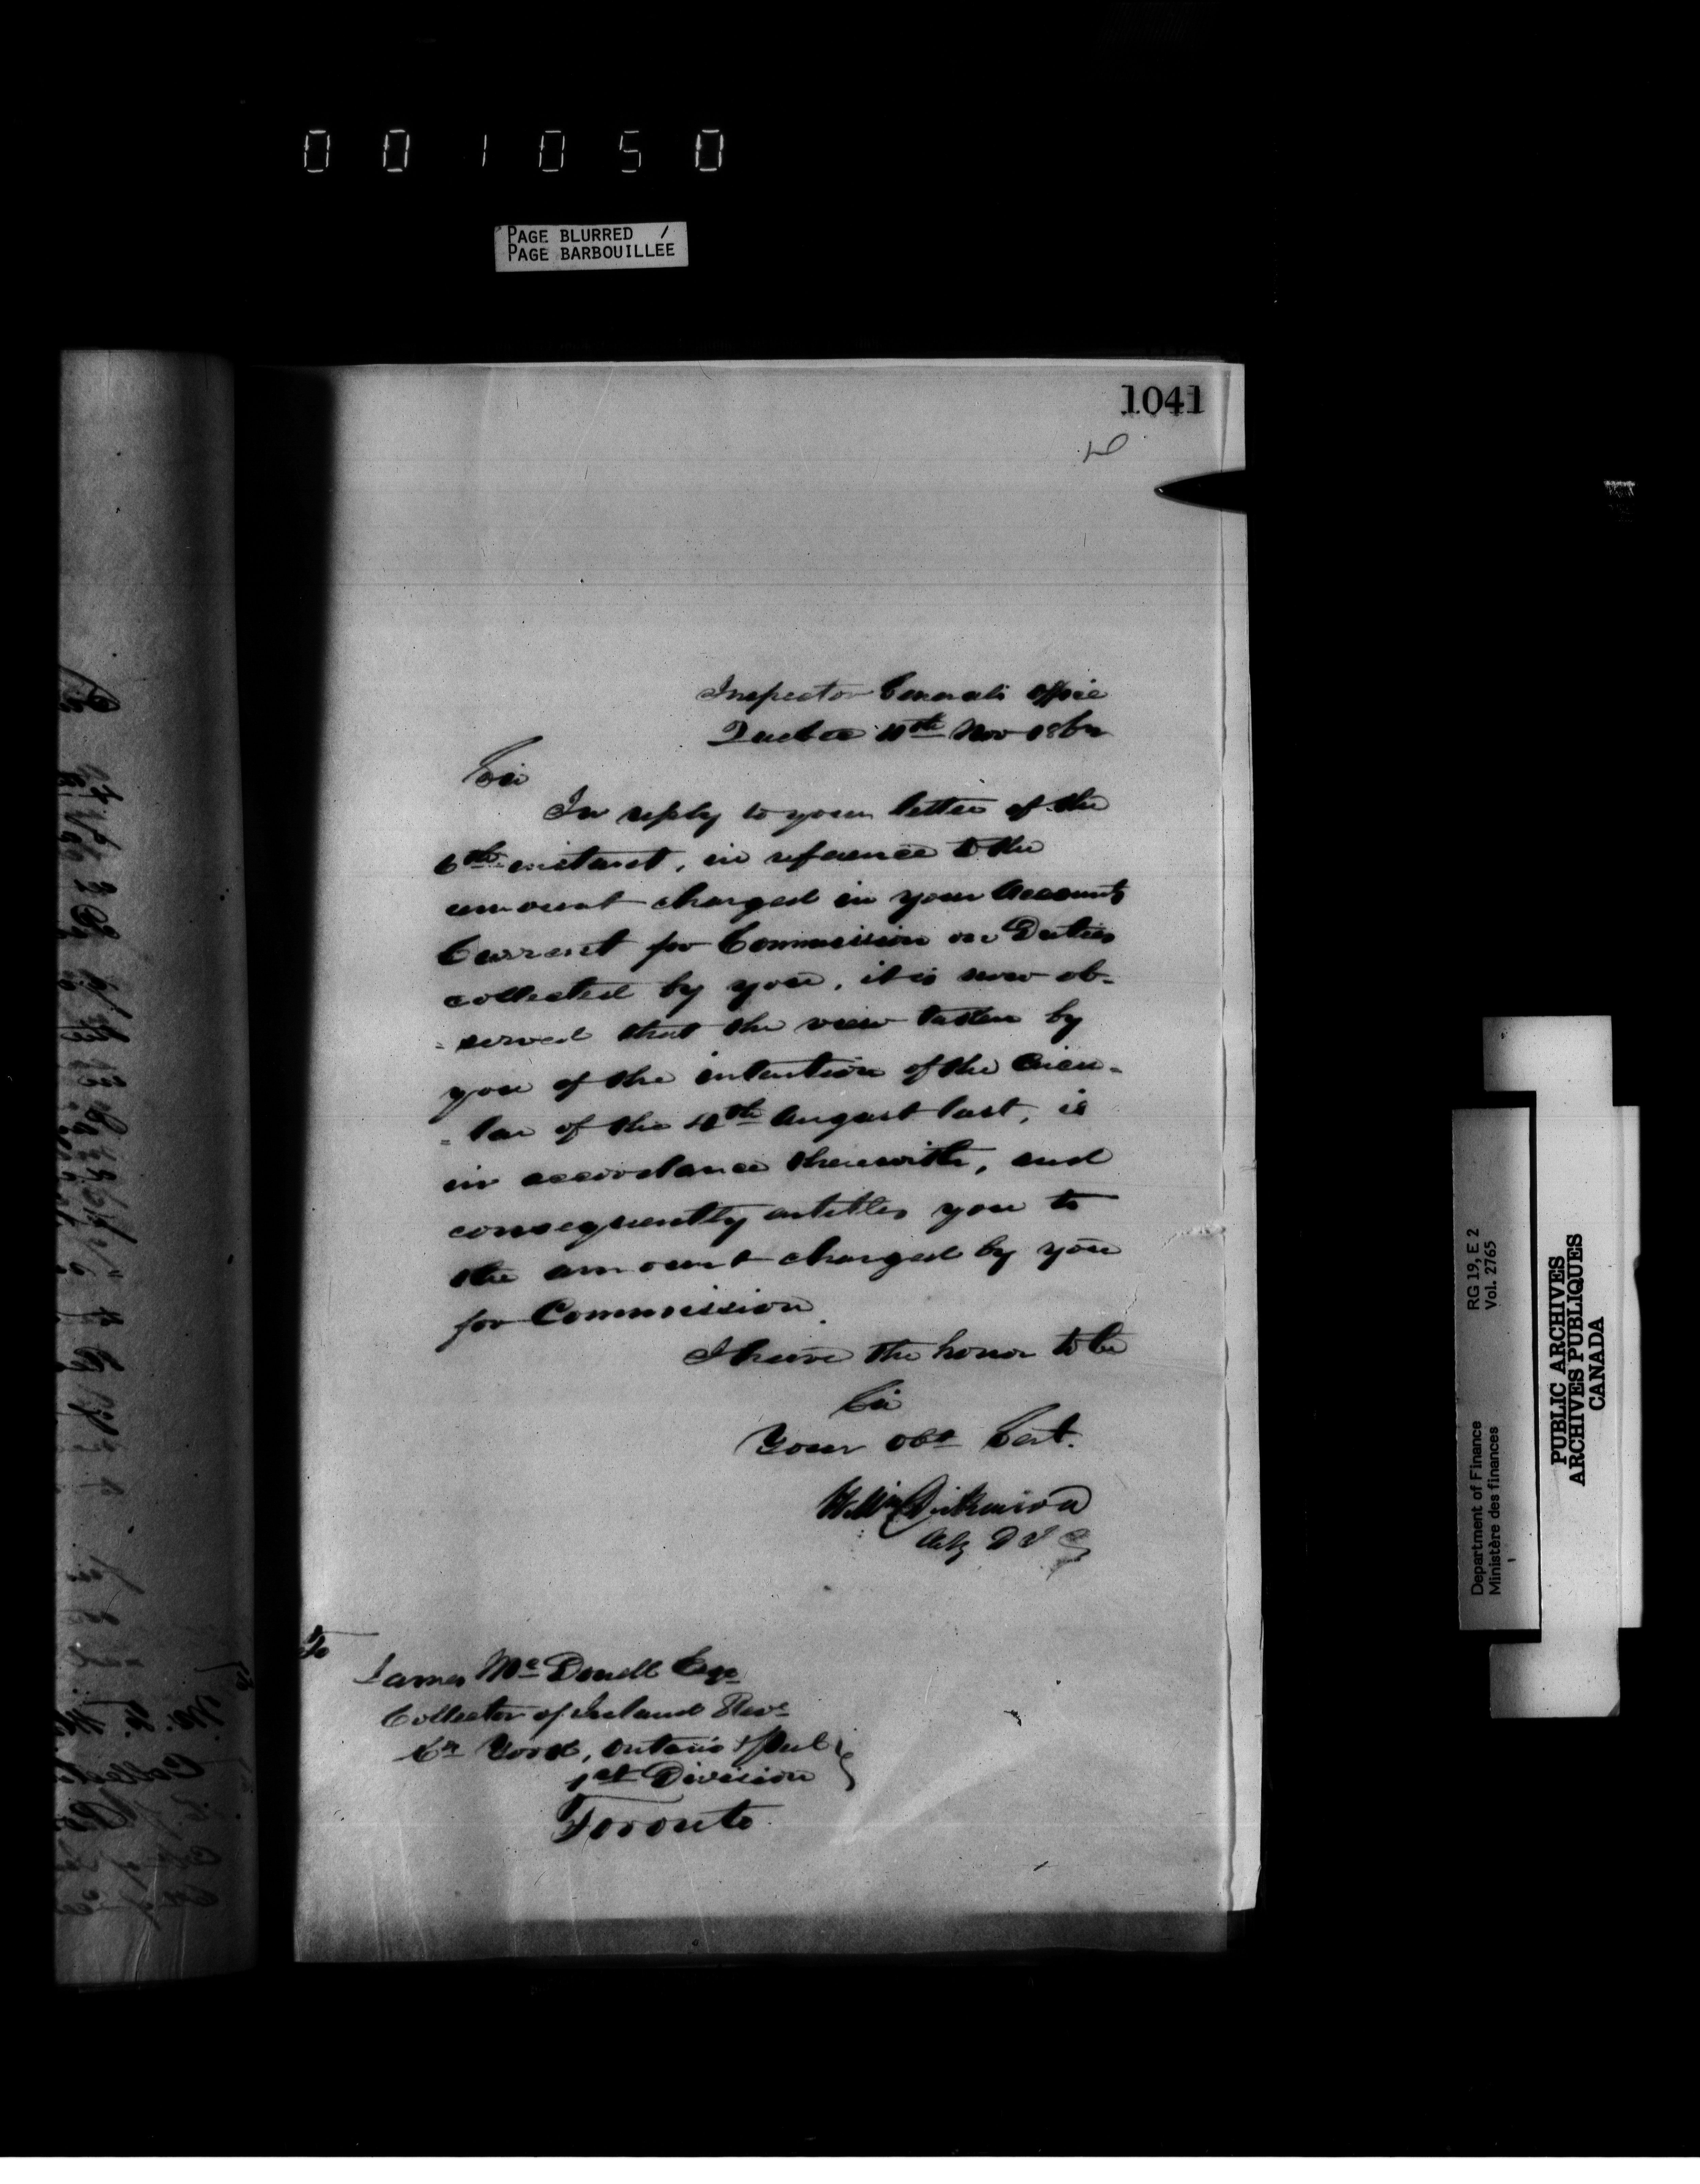 001050
PAGE BLURRED /
PAGE BARBOUILLEE
1041
Inspector Generals Office
Quebec 10th Nov 1862
Sir
In reply to your letter of the
6th instant, in reference to the
amount charged in your Accounts
Current for Commission on Duties
collected by you, it is now ob-
-served that the view taken by
you of the intention of the Circu-
-lar of the 4th August last, is
in accordance therewith, and
consequently entitles you to
the amount charged by you
for Commission.
I have the honor to be
Sir
Your Obt Sert.
Wm Dickinson
Actg D I G
To
James McDonell Esqr
Collector of Inland Reve
Co York, Ontario & Peel
1st Division
Toronto
RG 19, E 2
Vol. 2765
Department of Finance
Ministère des finances
PUBLIC ARCHIVES
ARCHIVES PUBLIQUES
CANADA